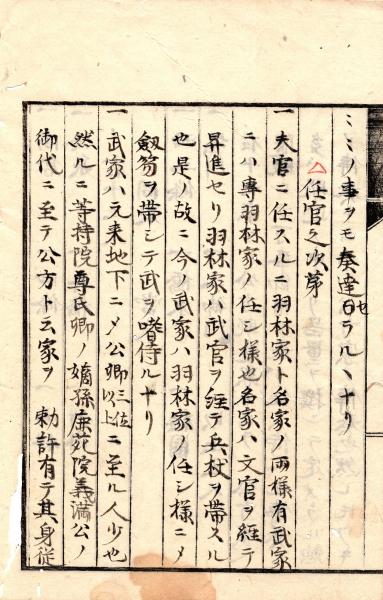 ミミノ事ヲモ奏達セラルヽナリ
△任官之次第
一夫官ニ任スルニ羽林家ト名家ノ両様有武家
ニハ専羽林家ノ任シ様也名家ハ文官ヲ経テ
昇進セリ羽林家ハ武官ヲ経テ兵杖ヲ帯スル
也是ノ故ニ今ノ武家ハ羽林家ノ任シ様ニメ
劔笏ヲ帯シテ武ヲ嗜侍ルナリ
一武家ハ元来地下ニメ公卿三位以上ニ至ル人少也
然ルニ等持院尊氏卿ノ嫡孫鹿苑院義満公ノ
御代ニ至テ公方ト云家ヲ 勅許有テ其身従